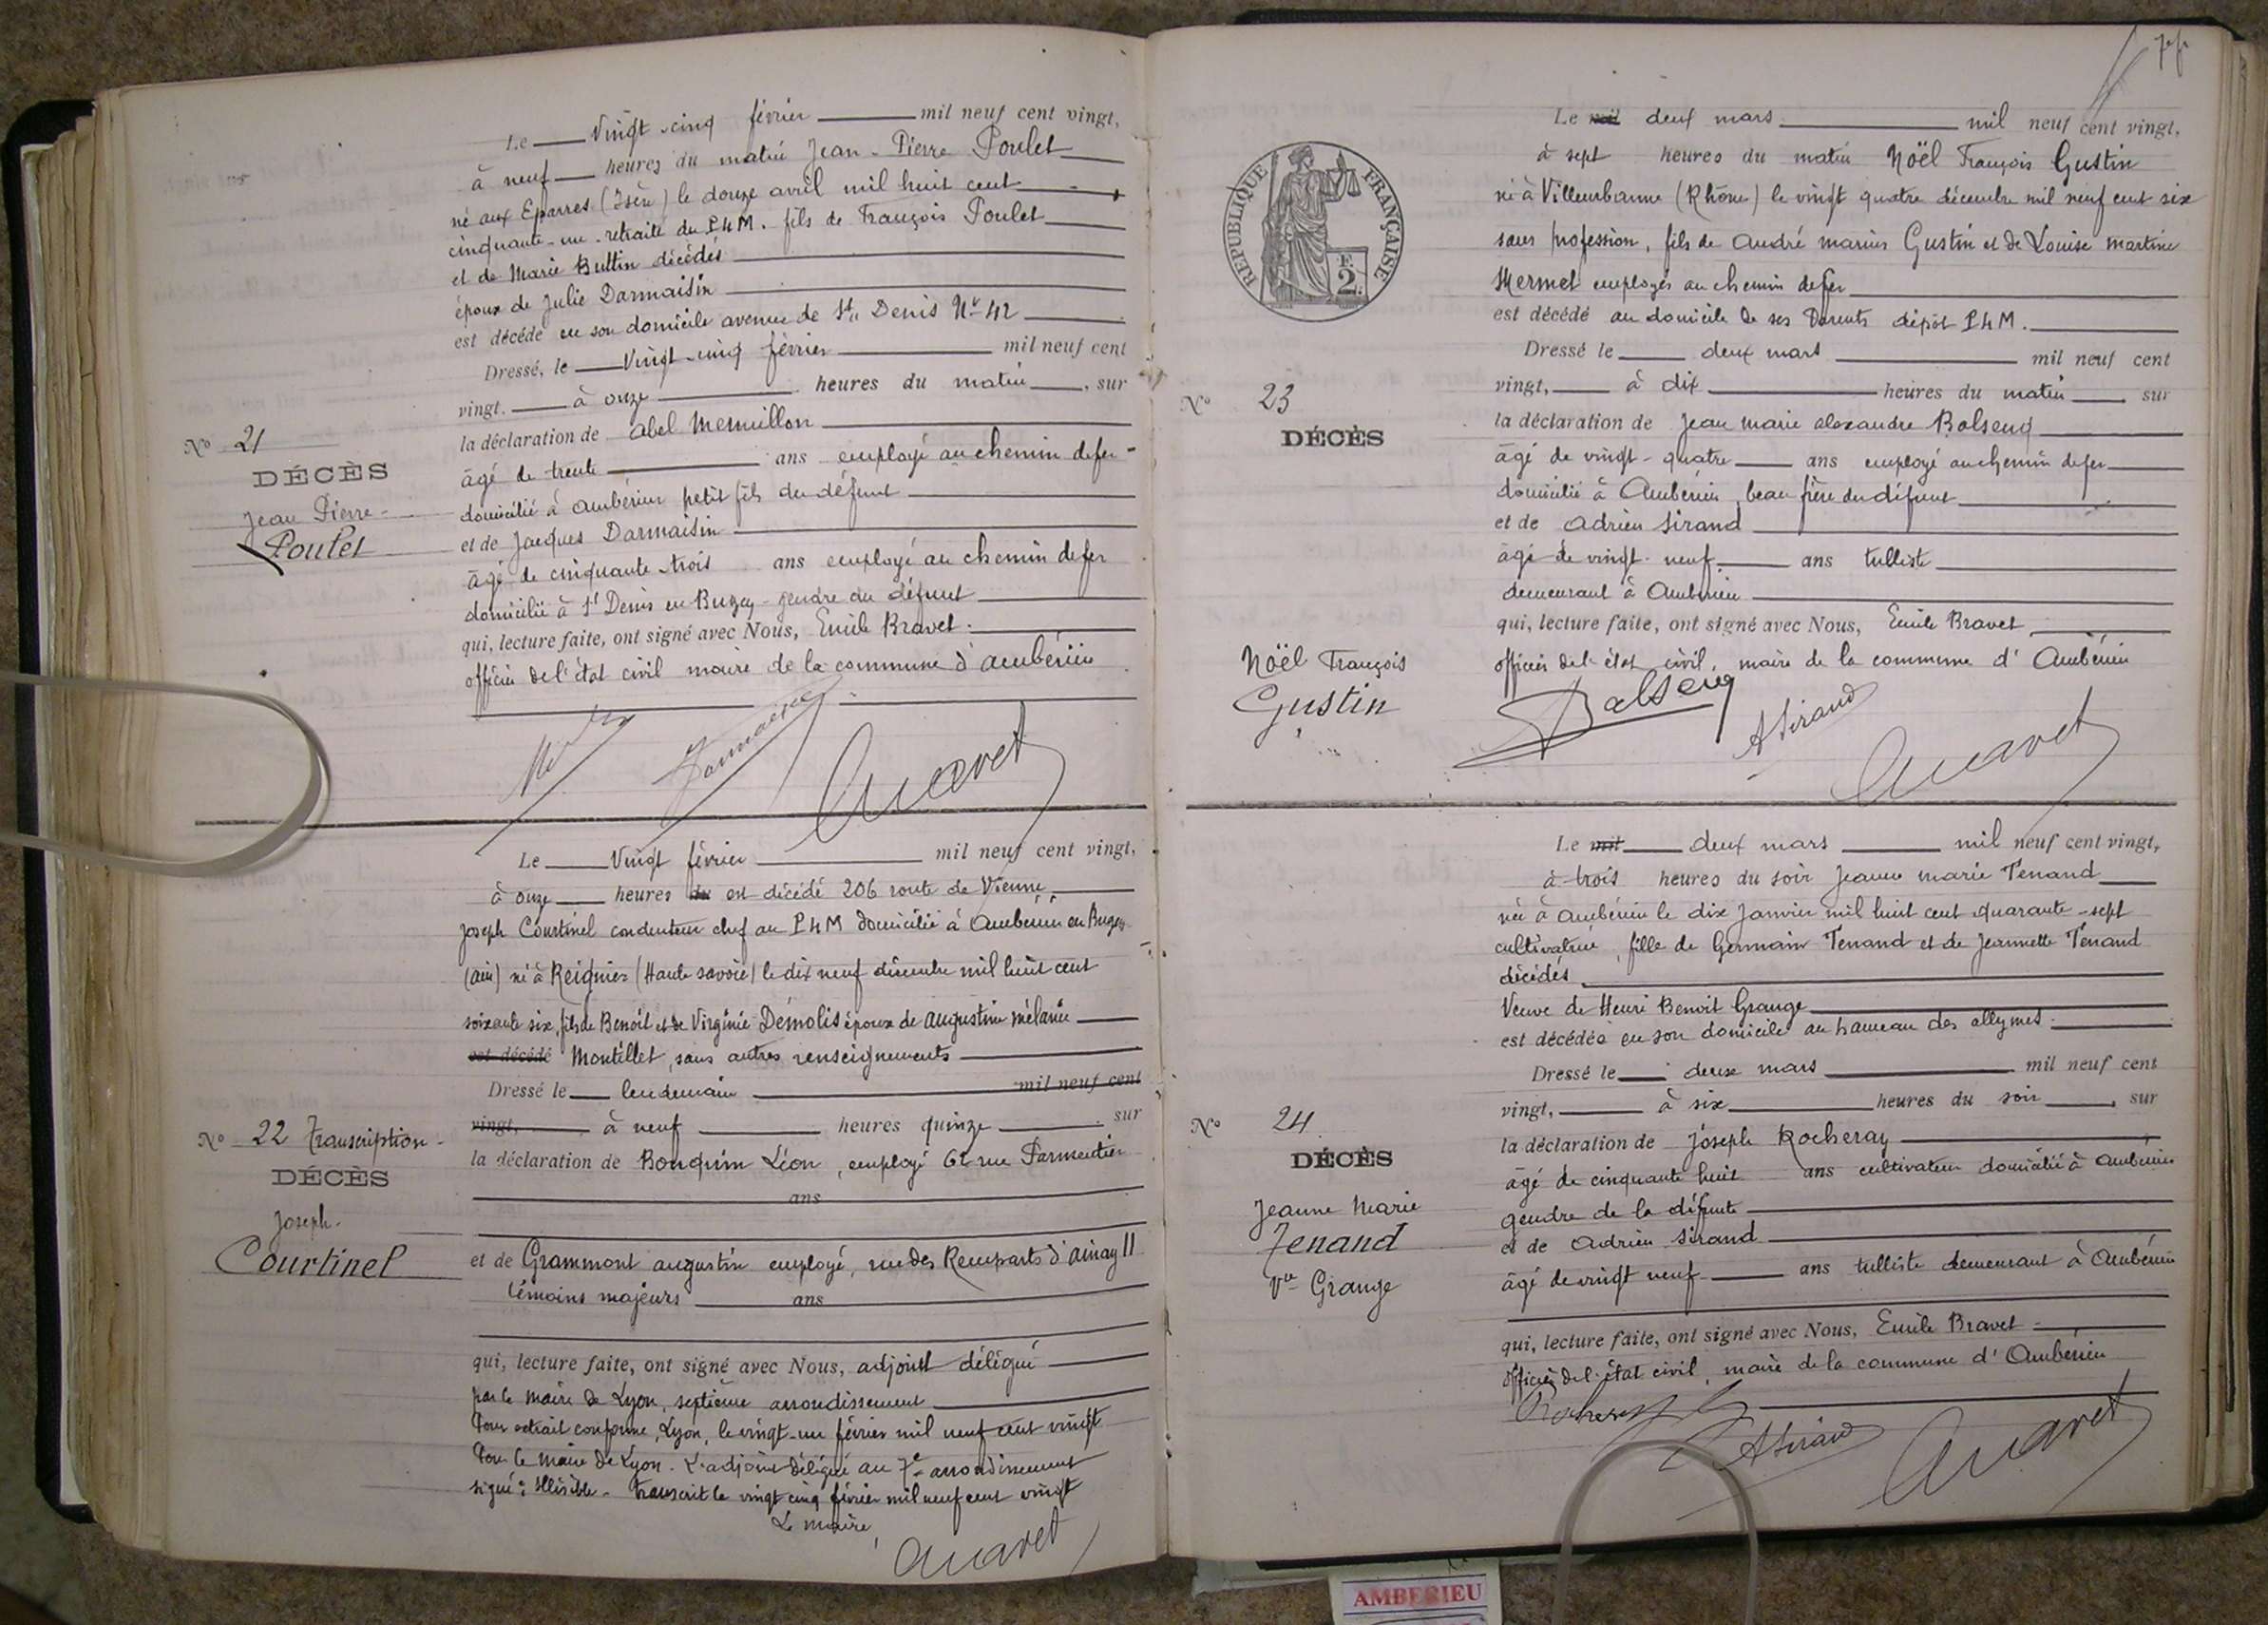 Le Vingt-cinq février mil neuf cent vingt,
à neuf heures du matin Jean-Pierre Poulet
né aux Eparres (Isère) le douze avril mil huit cent
cinquante-un retraité du PLM. fils de François Poulet
et de Marie Buttin décédés
époux de Julie Darmaisin
est décédé en son domicile avenue de St Denis No 42
Dressé, le Vingt-cinq février mil neuf cent
vingt. à onze heures du matin, sur
la déclaration de Abel
âgé de trente ans employé au chemin de fer
domicilié à Ambérieu petit fils du défunt
et de Jacques Darmaisin
âgé de cinquante-trois ans employé au chemin de fer
domicilié à St Denis en Bugey gendre du défunt
qui, lecture faite, ont signé avec Nous, Emile Bravet.
officier de l'état civil maire de la commune d'Ambérieu
No 21
DÉCÈS
Jean Pierre
Poulet
Le Vingt février mil neuf cent vingt,
à onze heures du est décédé 206 route de Vienne
Joseph Courtinel conducteur chef au PLM domicilié à Ambérieu en Bugey
(Ain) né à Reignier (Haute Savoie) le dix neuf décembre mil huit cent
soixante six, fils de Benoît et de Virginie Démolis époux de Augustine Mélanie
est décédé Montillet, sans autres renseignements
Dressé le lendemain mil neuf cent
vingt, à neuf heures quinze sur
la déclaration de Bouquin Léon, employé 62 rue Parmentier
ans
et de Grammont Augustin employé, rue des Remparts d'Ainay 11
témoins majeurs ans
qui, lecture faite, ont signé avec Nous, adjoint délégué
par le Maire de Lyon, septième arrondissement
Pour extrait conforme, Lyon, le vingt-un février mil neuf cent vingt
Pour le Maire de Lyon. L'adjoint délégué au 7e arrondissement
signé: Illisible. Transcrit le vingt cinq février mil neuf cent vingt
Le Maire,
No 22 Transcription
DÉCÈS
Joseph
Courtinel
Le mil deux mars mil neuf cent vingt,
à sept heures du matin Noël François Gustin
né à Villeurbanne (Rhône) le vingt quatre décembre mil neuf cent six
sans profession, fils de André Marius Gustin et de Louise Martine
Mermet employés au chemin de fer
est décédé au domicile de ses Parents dépôt PLM.
Dressé le deux mars mil neuf cent
vingt, à dix heures du matin sur
la déclaration de Jean Marie Alexandre Balseng
âgé de vingt-quatre ans employé au chemin de fer
domicilié à Ambérieu, beau frère du défunt
et de Adrien Sirand
âgé de vingt-neuf ans tulliste
demeurant à Ambérieu
qui, lecture faite, ont signé avec Nous, Emile Bravet
officier de l'état civil, maire de la commune d'Ambérieu
Balseng
A Sirand
RÉPUBLIQUE FRANÇAISE
F.
2.
No 23
DÉCÈS
Noël François
Gustin
Le mil deux mars mil neuf cent vingt,
à trois heures du soir Jeanne Marie Tenand
née à Ambérieu le dix janvier mil huit cent quarante-sept
cultivatrice, fille de Germain Tenand et de Jeannette Tenand
décédés
Veuve de Henri Benoit Grange
est décédée en son domicile au hameau des Allymes
Dressé le deux mars mil neuf cent
vingt, à six heures du soir, sur
la déclaration de Joseph Rocheray
âgé de cinquante huit ans cultivateur domicilié à Ambérieu
gendre de la défunte
et de Adrien Sirand
âgé de vingt neuf ans tulliste demeurant à Ambérieu
qui, lecture faite, ont signé avec Nous, Emile Bravet
officier de l'état civil, maire de la commune d'Ambérieu
A Sirand
No 24
DÉCÈS
Jeanne Marie
Tenand
Vve Grange
AMBERIEU